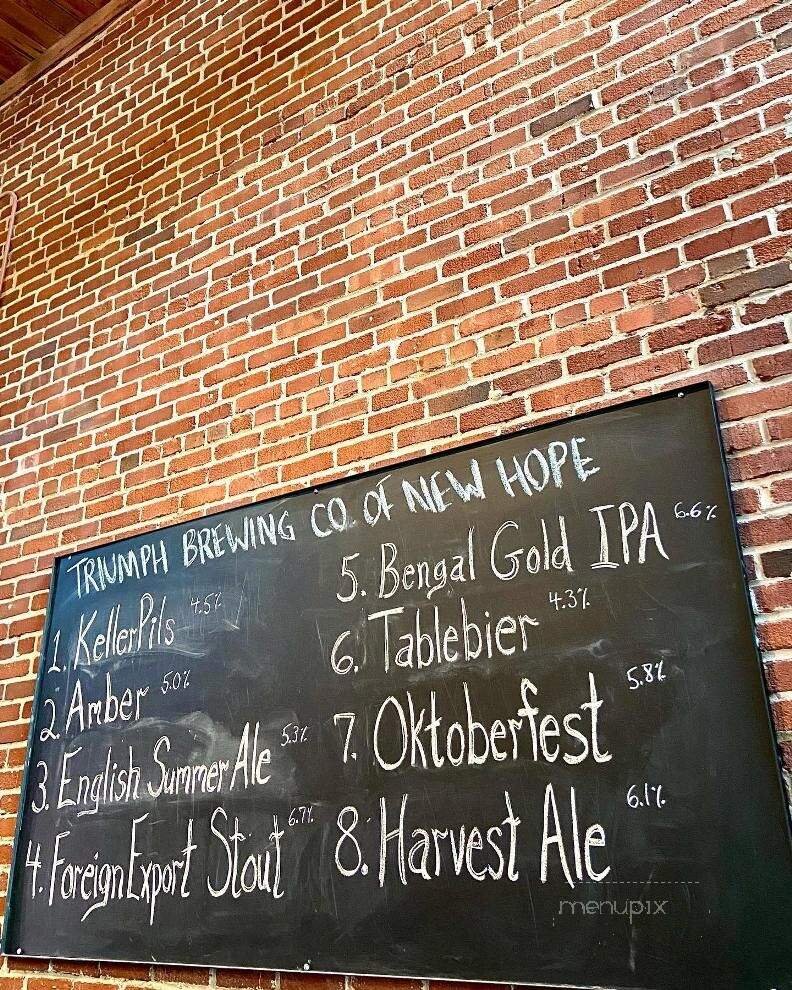 TRIUMPH BREWING CO. OF NEW HOPE
1. KellerPils 4.5%
2. Amber 5.0%
3. English Summer Ale 5.3%
4. Foreign Export Stout 6.7%
5. Bengal Gold IPA 6.6%
6. Tablebier 4.3%
7. Oktoberfest 5.8%
8. Harvest Ale 6.1%
menupix